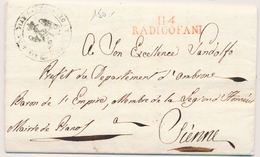 114
RADICOFANI
A Son Excellence Landolfo
Préfet du Département d'Ombrone
Baron de l'Empire, Membre de la Legion d'Honneur
Mairie de Piano
a
Sienne